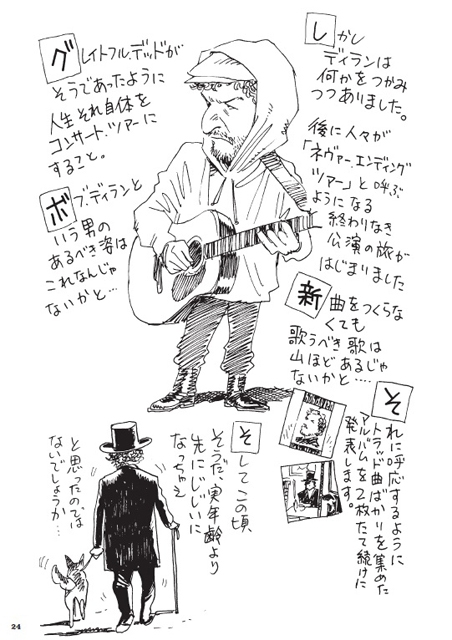 しかし
ディランは
何かをつかみ
つつありました。
後に人々が
「ネヴァー.エンディング
ツアー」と呼ぶ
ようになる
終わりなき
公演の旅が
はじまりました
グレイトフル.デッドが
そうであったように
人生それ自体を
コンサート.ツアーに
すること。
ボブ.ディランと
いう男の
あるべき姿は
これなんじゃ
ないかと…
新曲をつくらな
くても
歌うべき歌は
山ほどあるじゃ
ないかと‥‥
それに呼応するように
トラッド曲ばかりを集めた
アルバムを2枚たて続けに
発表します。
そしてこの頃
そうだ、実年齢より
先にじじいに
なっちゃえ
と思ったのでは
ないでしょうか…
24